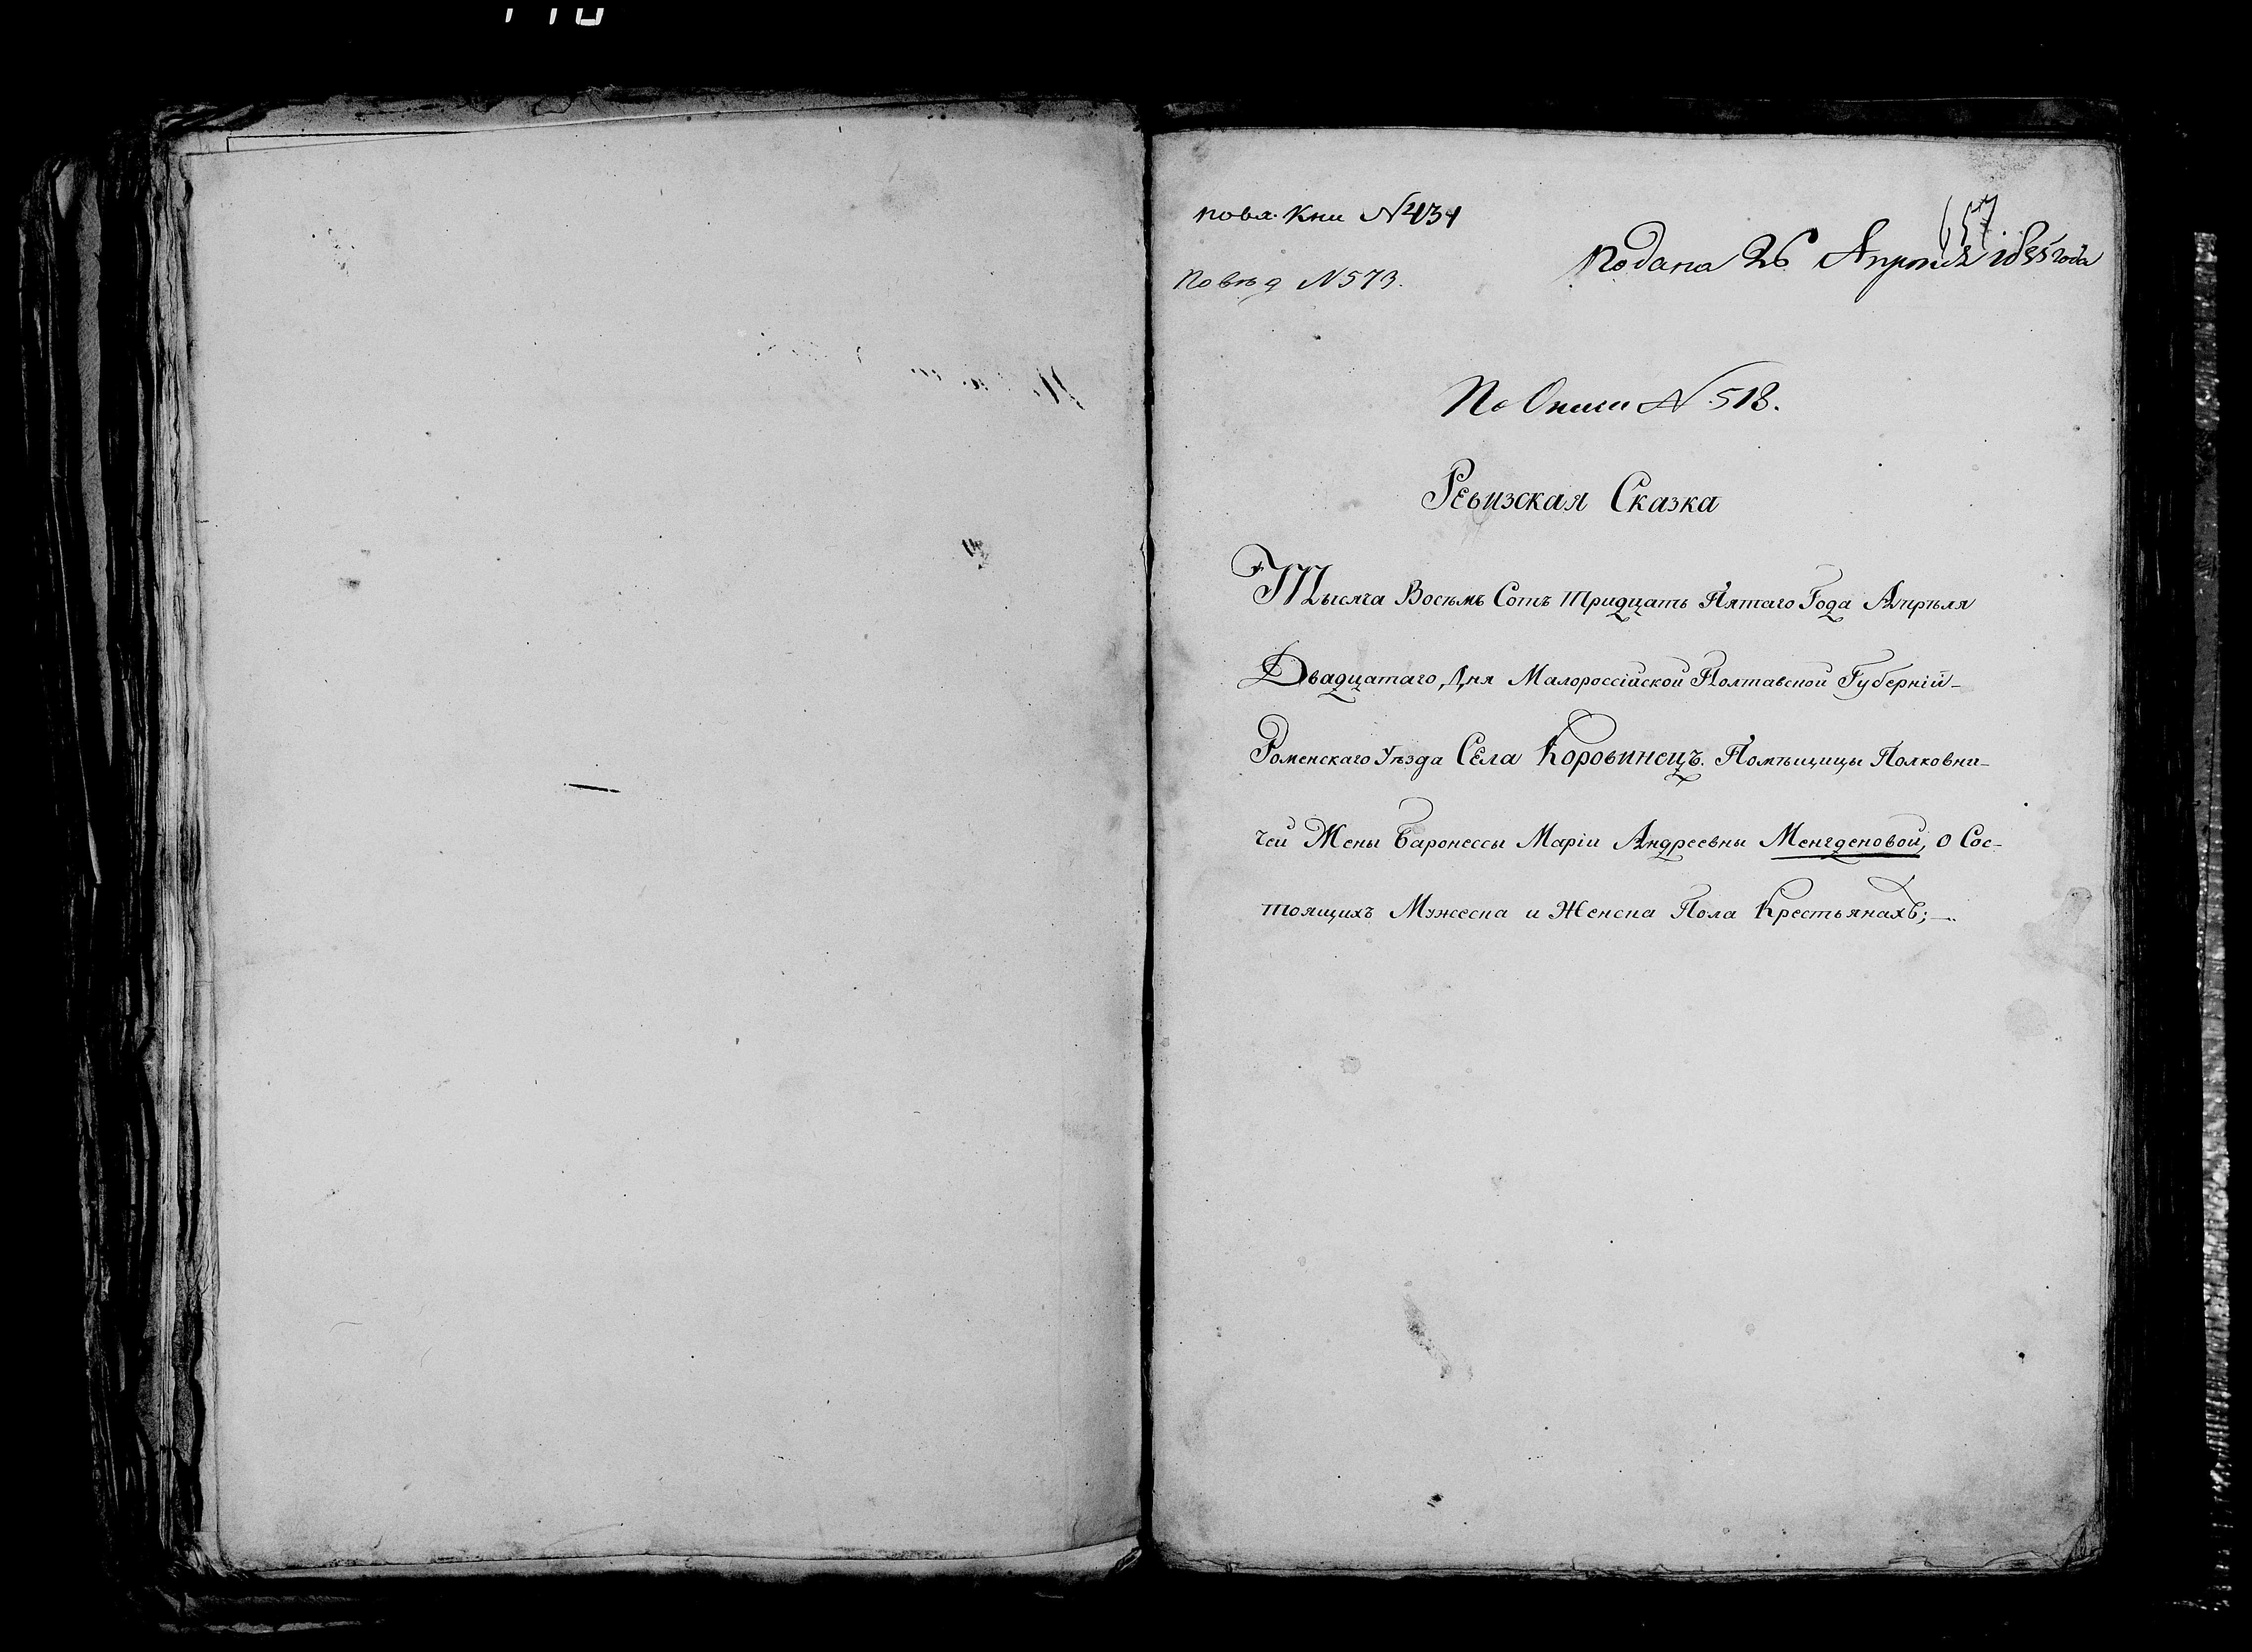 657
повх. Кни №431
подана 26 Апреля 1835 года
по вѣд №573.
По Описи №518.
Ревизская Сказка
Тысяча Восемь Сотъ Тридцать Пятаго Года Апрѣля
Двадцатаго Дня Малороссійской Полтавской Губерній-
Роменскаго Уѣзда Села Коровинецъ. Помѣщицы Полковни-
чей Жены Баронессы Маріи Андреевны Менгденовой, о Сос-
тоящихъ Мужеска и Женска Пола Крестьянахъ;—